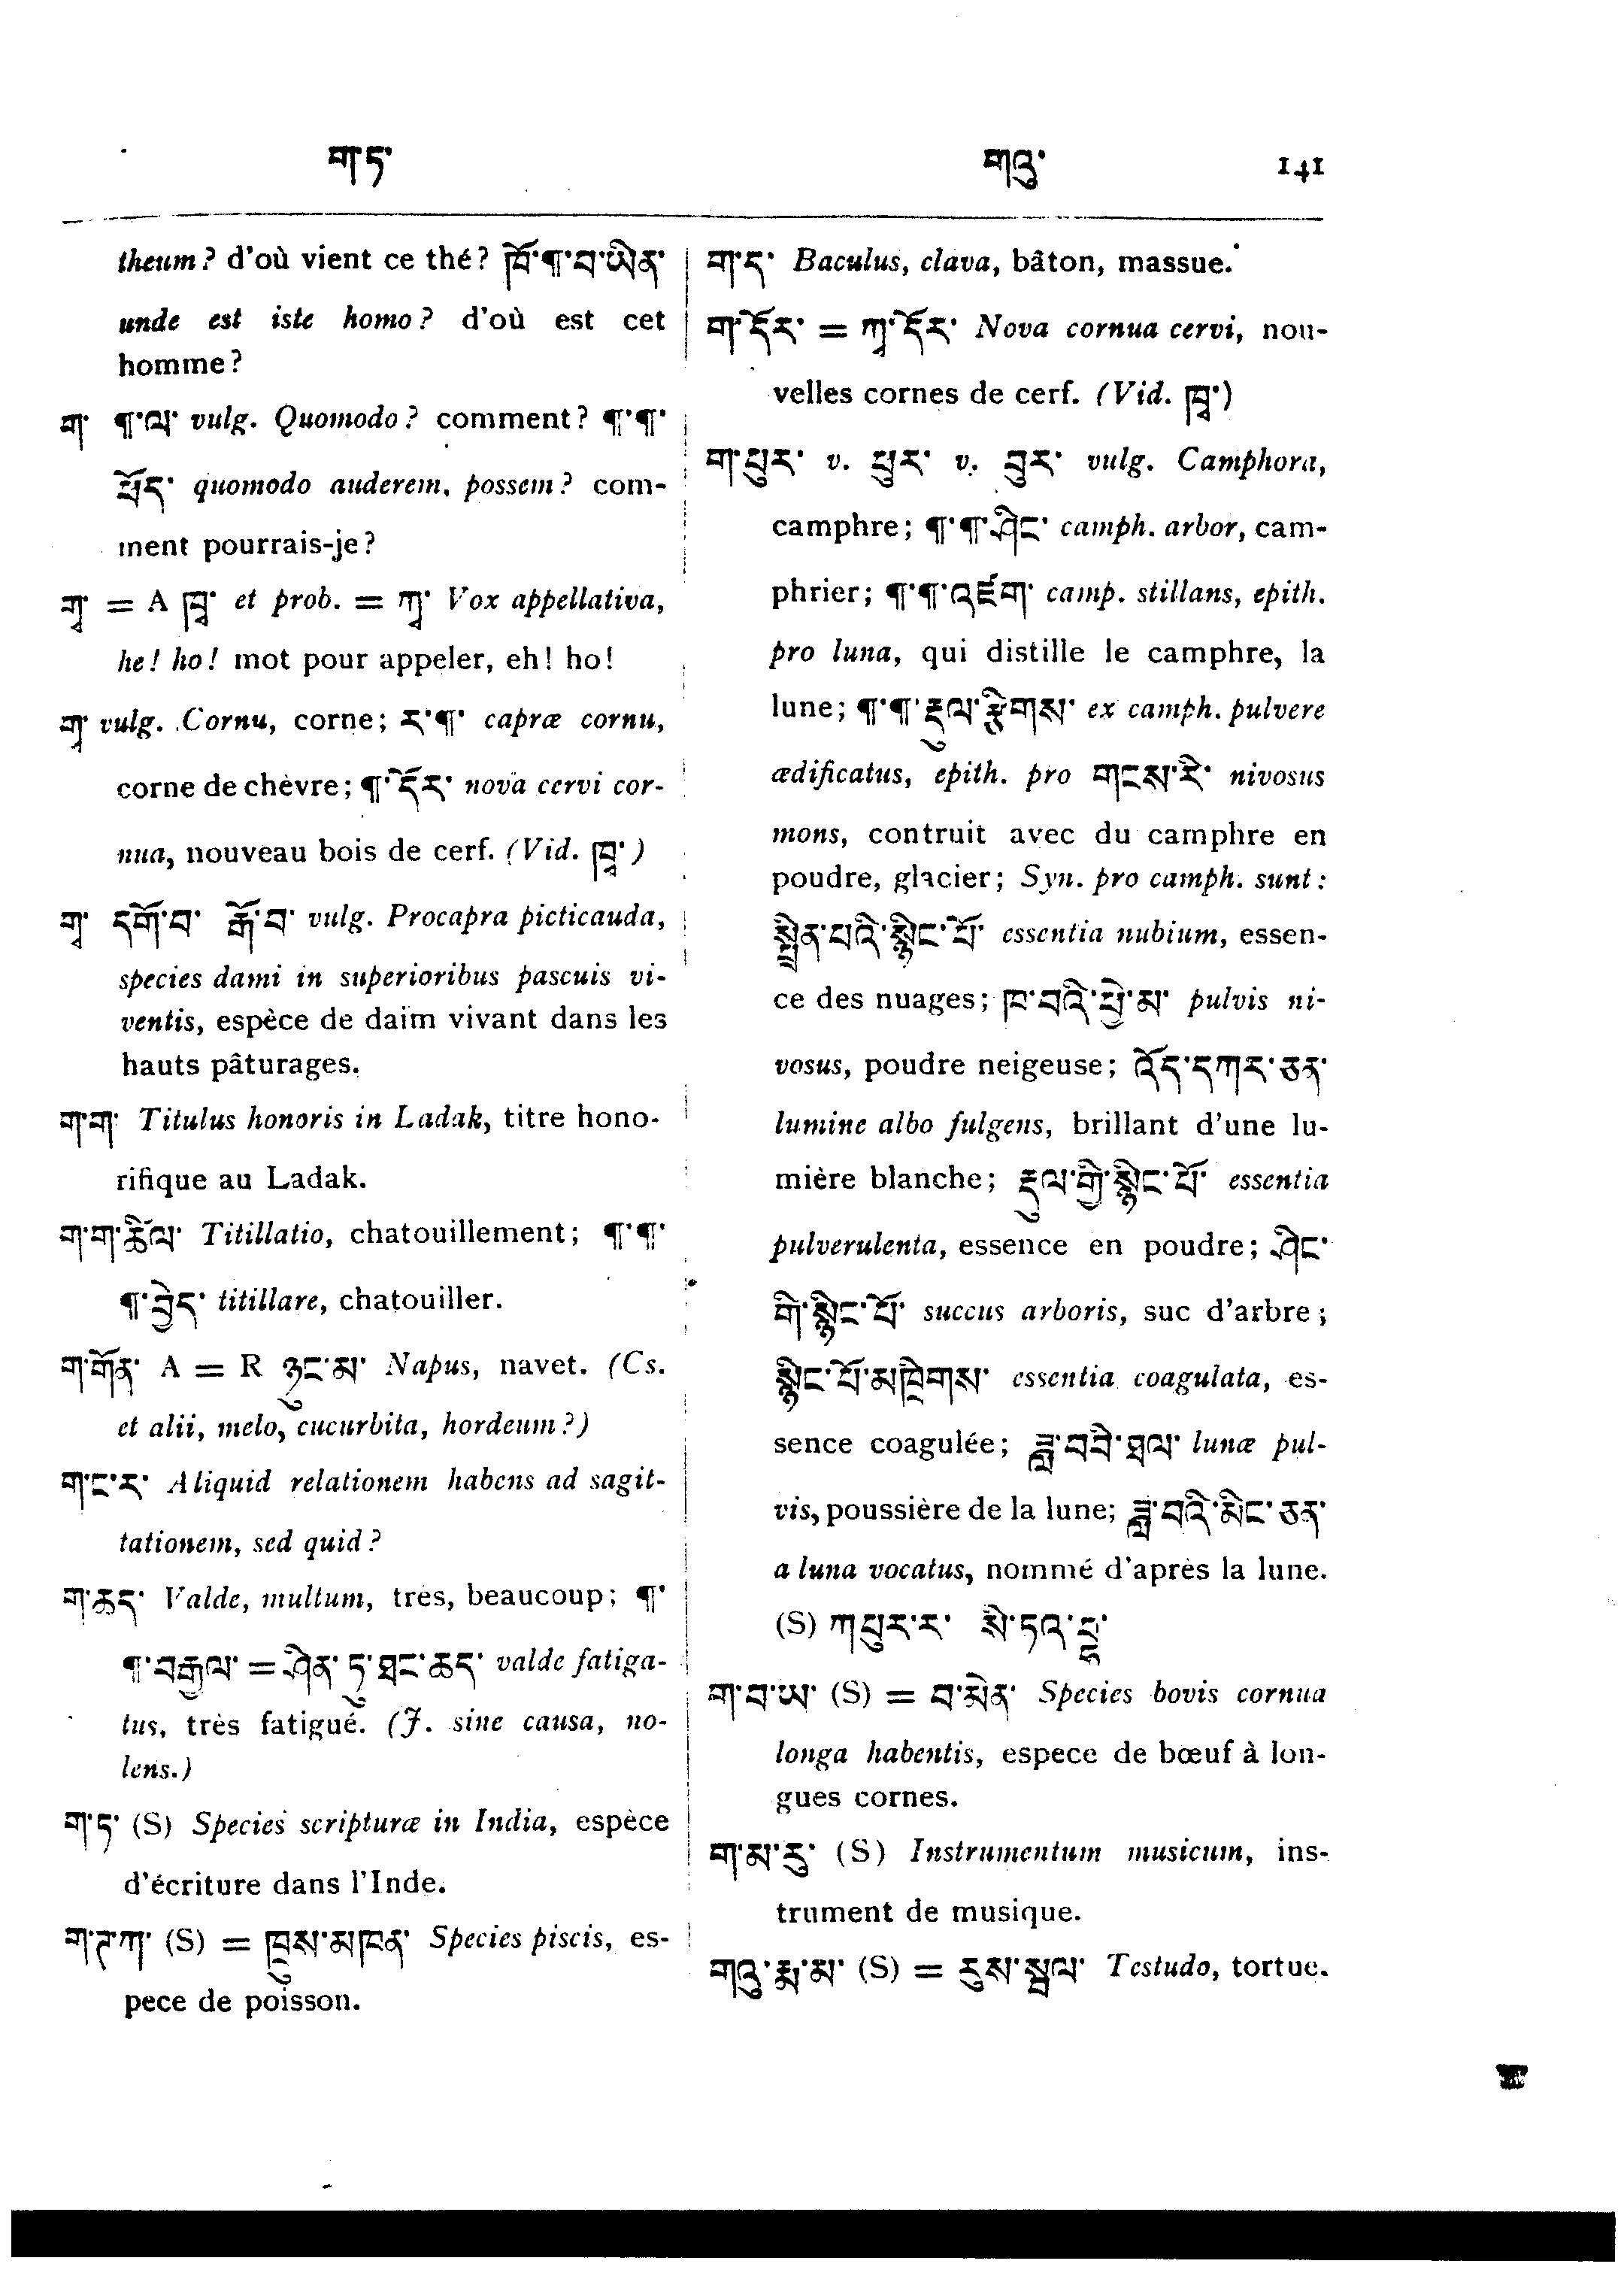 ག་ཏ་
གའུ་ 141
theum? d'où vient ce thé? ཁོ་¶་བ་ཡིན་
unde est iste homo? d'où est cet
homme?
ག་ ¶་ལ་ vulg. Quomodo? comment? ¶་¶་
ཕོད་ quomodo auderem, possem? com-
ment pourrais-je?
གྭ་ = A ཁྭ་ et prob. = ཀྭ་ Vox appellativa,
he! ho! mot pour appeler, eh! ho!
གྭ་ vulg. Cornu, corne; ར་¶་ capræ cornu,
corne de chèvre; ¶་དོར་ nova cervi cor-
nua, nouveau bois de cerf. (Vid. ཁྭ་)
གྭ་ དགོ་བ་ རྒོ་བ་ vulg. Procapra picticauda,
species dami in superioribus pascuis vi-
ventis, espèce de daim vivant dans les
hauts pâturages.
ག་ག་ Titulus honoris in Ladak, titre hono-
rifique au Ladak.
ག་ག་ཚིལ་ Titillatio, chatouillement; ¶་¶་
¶་བྱེད་ titillare, chatouiller.
ག་གོན་ A = R ཉུང་མ་ Napus, navet. (Cs.
et alii, melo, cucurbita, hordeum?)
ག་ང་ར་ Aliquid relationem habens ad sagit-
tationem, sed quid?
ག་ཆད་ Valde, multum, très, beaucoup; ¶་
¶་བརྒྱལ་ = ཤིན་ཏུ་ཐང་ཆད་ valde fatiga-
tus, très fatigué. (J. sine causa, no-
lens.)
ག་ཏ་ (S) Species scripturæ in India, espèce
d'écriture dans l'Inde.
ག་ཌ་ཀ་ (S) = ཁྲུས་མཁན་ Species piscis, es-
pece de poisson.
ག་ད་ Baculus, clava, bâton, massue.
ག་དོར་ = ཀྭ་དོར་ Nova cornua cervi, nou-
velles cornes de cerf. (Vid. ཁྭ་)
ག་པུར་ v. ཕུར་ v. བུར་ vulg. Camphora,
camphre; ¶་¶་ཤིང་ camph. arbor, cam-
phrier; ¶་¶་འཛག་ camp. stillans, epith.
pro luna, qui distille le camphre, la
lune; ¶་¶་རྡུལ་རྩིགས་ ex camph. pulvere
ædificatus, epith. pro གངས་རི་ nivosus
mons, contruit avec du camphre en
poudre, glacier; Syn. pro camph. sunt:
སྤྲིན་པའི་སྙིང་པོ་ essentia nubium, essen-
ce des nuages; ཁ་བའི་ཕྱེ་མ་ pulvis ni-
vosus, poudre neigeuse; འོད་དཀར་ཅན་
lumine albo fulgens, brillant d'une lu-
mière blanche; རྡུལ་གྱི་སྙིང་པོ་ essentia
pulverulenta, essence en poudre; ཤིང་
གི་སྙིང་པོ་ succus arboris, suc d'arbre;
སྙིང་པོ་མཁྲེགས་ essentia coagulata, es-
sence coagulée; ཟླ་བའི་ཐལ་ lunæ pul-
vis, poussière de la lune; ཟླ་བའི་མིང་ཅན་
a luna vocatus, nommé d'après la lune.
(S) ཀཔུར་ར་ སི་ཏའ་
ག་བ་ཡ་ (S) = བ་མེན་ Species bovis cornua
longa habentis, espece de bœuf à lon-
gues cornes.
ག་མ་རུ་ (S) Instrumentum musicum, ins-
trument de musique.
གའུ་རྨ་མ་ (S) = རུས་སྦལ་ Testudo, tortue.